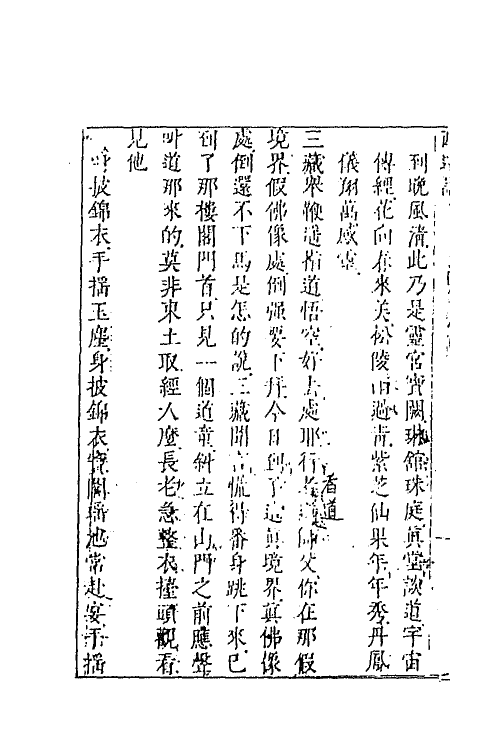 到晚風清此乃是靈宮寶闕琳館珠庭眞堂談道宇宙
傳經花向春來美松陵雨過青紫芝仙果年年秀丹鳳
儀翔萬感靈
三藏舉鞭遙指道悟空好去處那行者道師父你在那假
境界假佛像處倒强要下拜今日到了這眞境界眞佛像
處倒還不下馬是怎的說三藏聞言慌得番身跳下來已
到了那樓閣門首只見一個道童斜立在山門之前應聲
叫道那來的莫非東土取經人麼長老急整衣擡頭觀看
見他
身披錦衣手搖玉麈身披錦衣寶閣瑤池常赴宴手搖